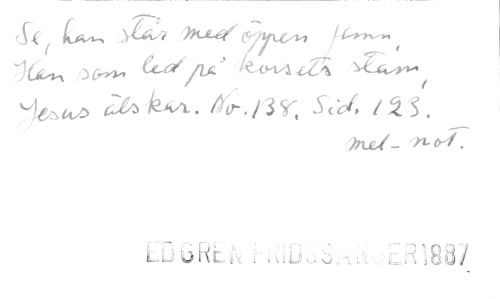 Se, han står med öppen famn,
Han som led på korsets stam,
Jesus älskar. No. 138. Sid. 123.
mel-not.
EDGREN FRIDSSÅNGER 1887